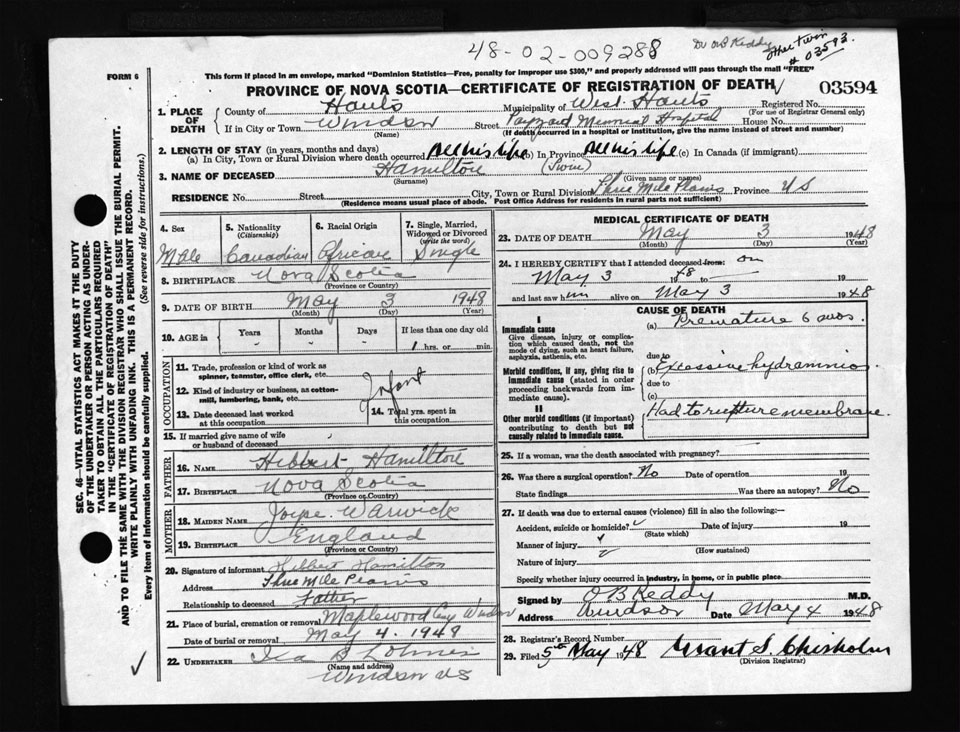 48-02-009288
Dr OB Reddy
other twin
# 03593.
FORM 6
This form if placed in an envelope, marked "Dominion Statistics—Free, penalty for improper use $300," and properly addressed will pass through the mail "FREE"
PROVINCE OF NOVA SCOTIA—CERTIFICATE OF REGISTRATION OF DEATH
03594
1. PLACE OF DEATH
County of Hants Municipality of West Hants Registered No.
(For use of Registrar General only)
If in City or Town Windsor Street Payzant Memorial Hospital House No.
(Name) (If death occurred in a hospital or institution, give the name instead of street and number)
2. LENGTH OF STAY (in years, months and days)
(a) In City, Town or Rural Division where death occurred All his life (b) In Province All his life (c) In Canada (if immigrant)
3. NAME OF DECEASED Hamilton (Twin)
(Surname) (Given name or names)
RESIDENCE No. Street City, Town or Rural Division Three Mile Plains Province NS
(Residence means usual place of abode. Post Office Address for residents in rural parts not sufficient)
4. Sex 5. Nationality (Citizenship) 6. Racial Origin 7. Single, Married, Widowed or Divorced (write the word)
Male Canadian African Single
8. BIRTHPLACE Nova Scotia
(Province or Country)
9. DATE OF BIRTH May 3 1948
(Month) (Day) (Year)
10. AGE in Years Months Days If less than one day old
" " 1 hrs. or min.
OCCUPATION
11. Trade, profession or kind of work as spinner, teamster, office clerk, etc.
12. Kind of industry or business, as cotton-mill, lumbering, bank, etc.
Infant
13. Date deceased last worked at this occupation
14. Total yrs. spent in this occupation
15. If married give name of wife or husband of deceased
FATHER
16. NAME Hibbert Hamilton
17. BIRTHPLACE Nova Scotia
(Province or Country)
MOTHER
18. MAIDEN NAME Joyce Warwick
19. BIRTHPLACE England
(Province or Country)
20. Signature of informant Hibbert Hamilton
Address Three Mile Plains
Relationship to deceased Father
21. Place of burial, cremation or removal Maplewood Cem Windsor
Date of burial or removal May 4. 1948
22. UNDERTAKER Ira B
(Name and address)
Windsor NS
MEDICAL CERTIFICATE OF DEATH
23. DATE OF DEATH May 3 1948
(Month) (Day) (Year)
24. I HEREBY CERTIFY that I attended deceased from: on
May 3 1948 to 19
and last saw him alive on May 3 1948
CAUSE OF DEATH
I
Immediate cause
Give disease, injury or complication which caused death, not the mode of dying, such as heart failure, asphyxia, asthenia, etc.
(a) Premature 6 mos.
due to
Morbid conditions, if any, giving rise to immediate cause (stated in order proceeding backwards from immediate cause).
(b) Excessive hydramnios
due to
(c)
II
Other morbid conditions (if important) contributing to death but not causally related to immediate cause.
Had to rupture membrane.
25. If a woman, was the death associated with pregnancy?
26. Was there a surgical operation? No Date of operation 19
State findings Was there an autopsy? No
27. If death was due to external causes (violence) fill in also the following:—
Accident, suicide or homicide? Date of injury 19
(State which)
Manner of injury
(How sustained)
Nature of injury
Specify whether injury occurred in industry, in home, or in public place
Signed by OB Reddy M.D.
Address Windsor Date May 4 1948
28. Registrar's Record Number
29. Filed 5th May 1948 Grant S. Chisholm
(Division Registrar)
SEC. 46—VITAL STATISTICS ACT MAKES IT THE DUTY
OF THE UNDERTAKER OR PERSON ACTING AS UNDER-
TAKER TO OBTAIN ALL THE PARTICULARS REQUIRED
IN THE "CERTIFICATE OF REGISTRATION OF DEATH"
AND TO FILE THE SAME WITH THE DIVISION REGISTRAR WHO SHALL ISSUE THE BURIAL PERMIT.
WRITE PLAINLY WITH UNFADING INK. THIS IS A PERMANENT RECORD.
Every item of Information should be carefully supplied. (See reverse side for instructions.)